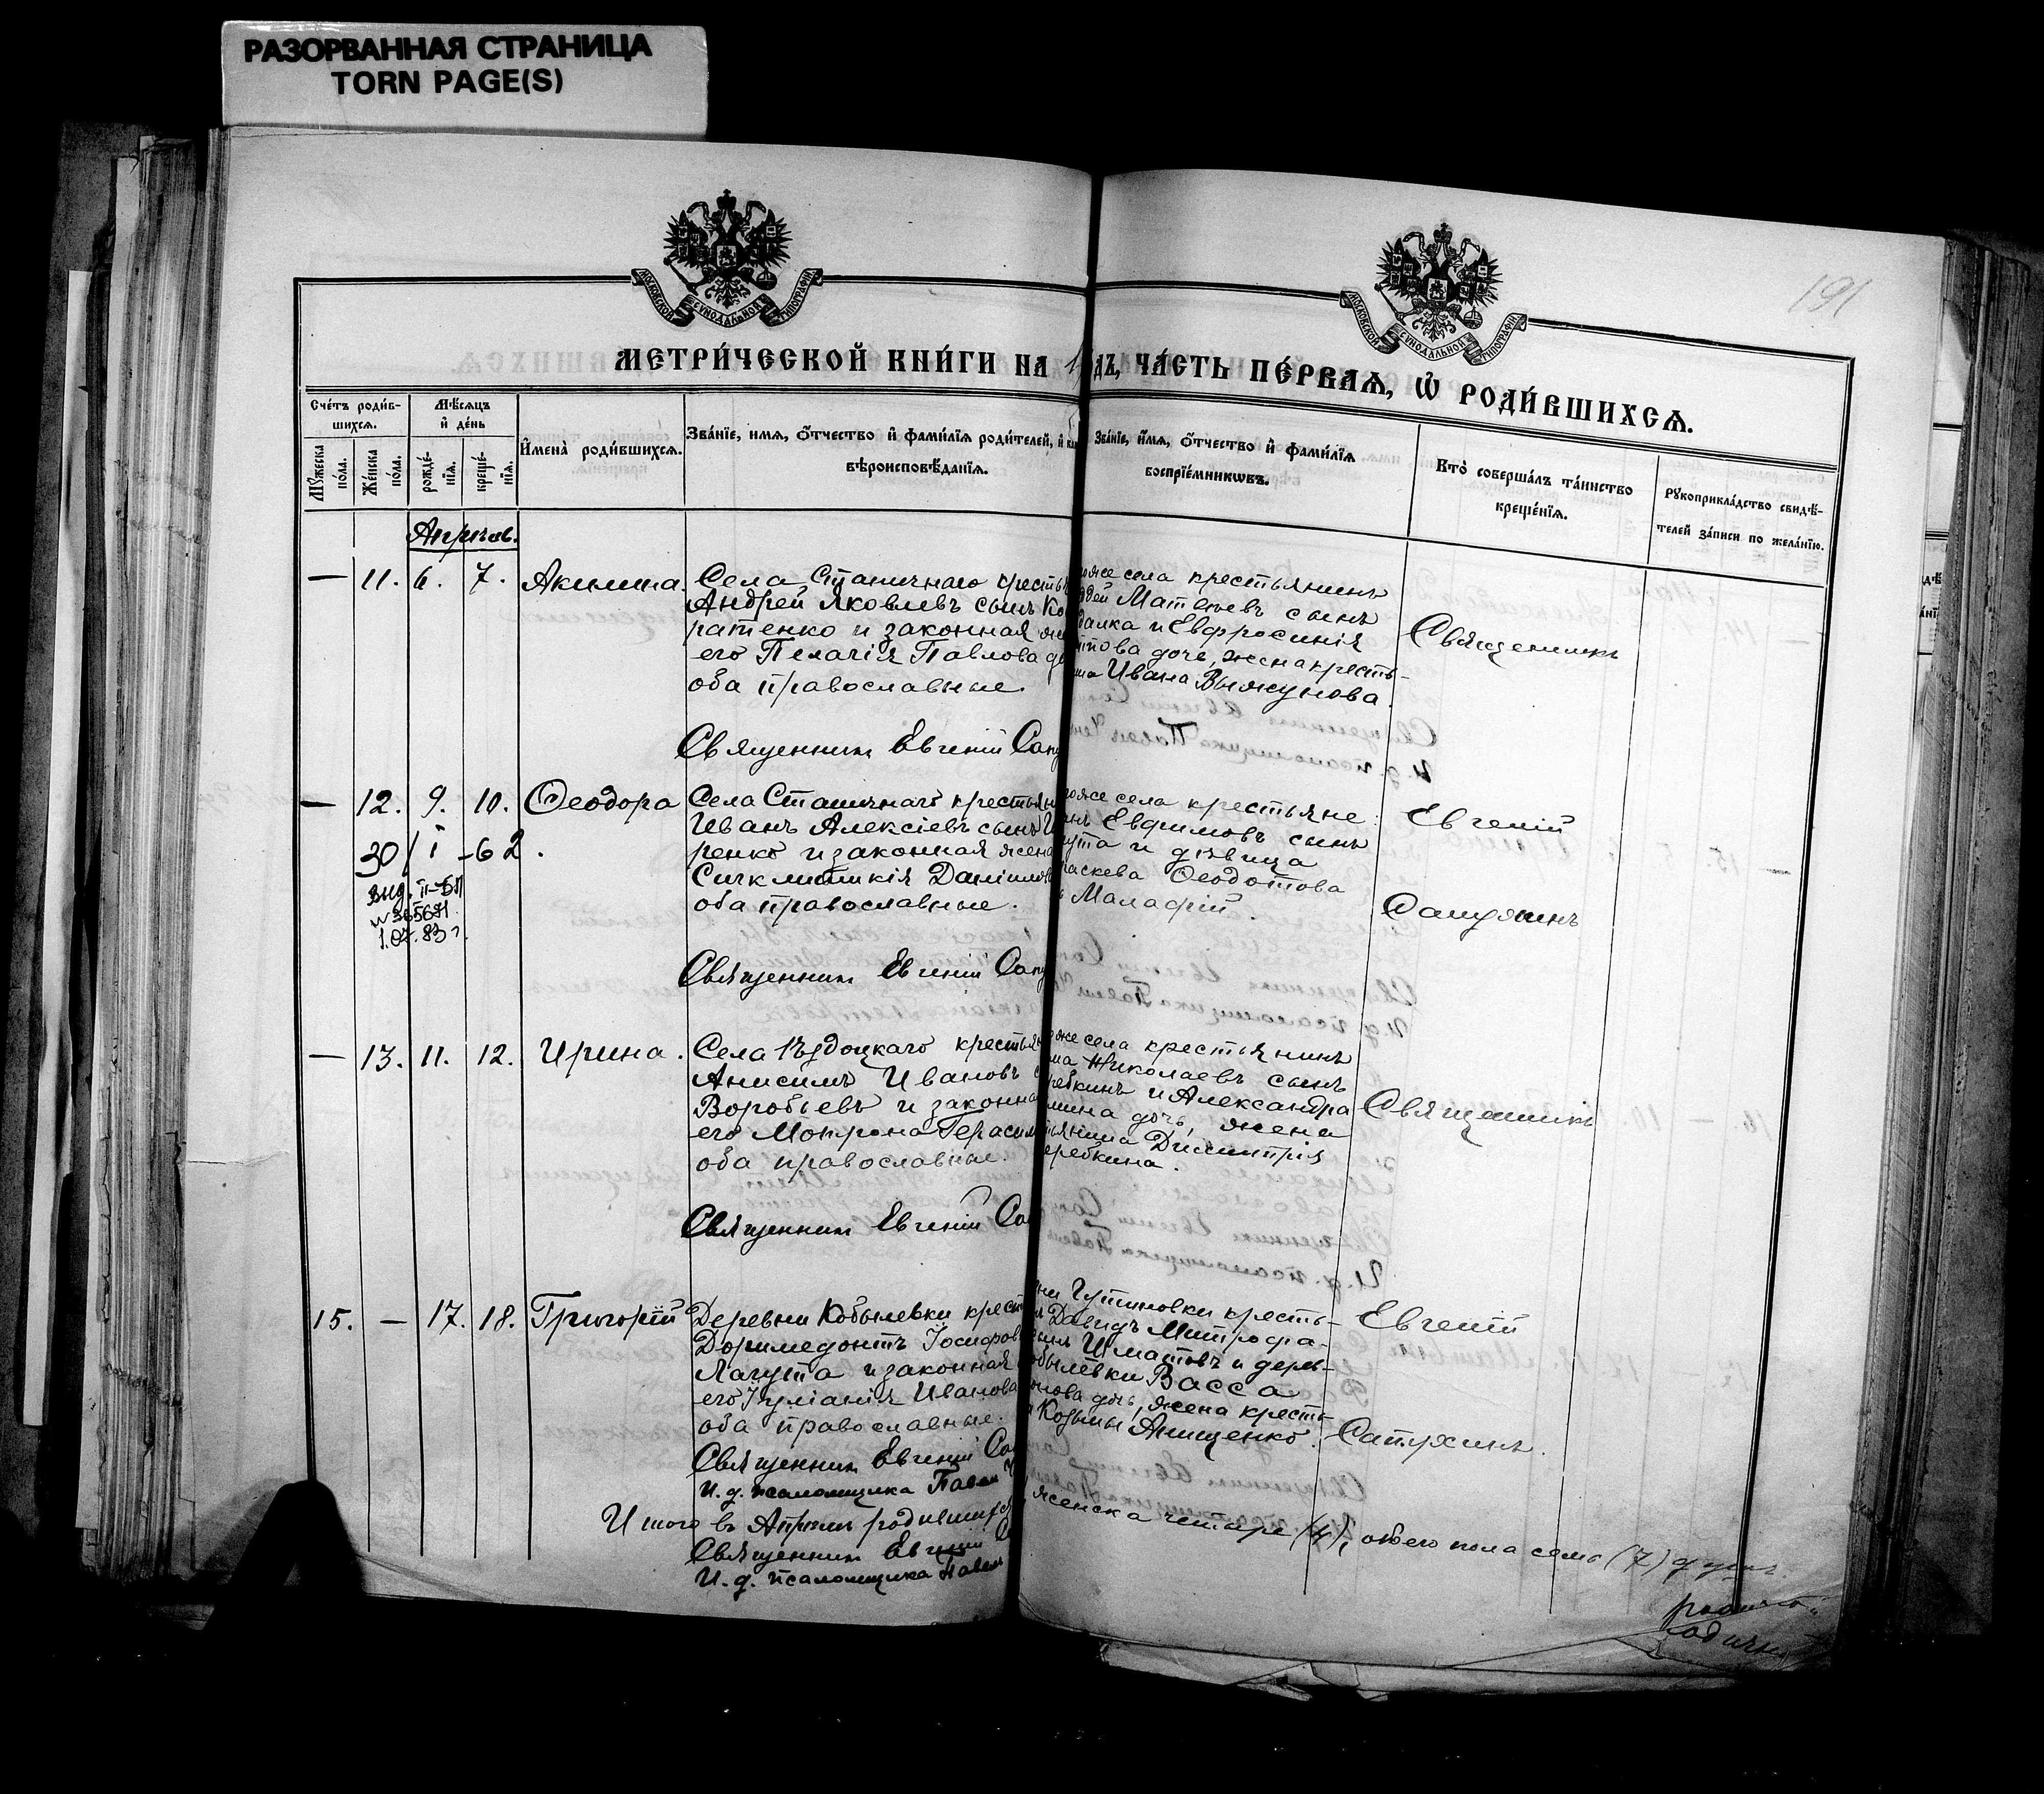 РАЗОРВАННАЯ СТРАНИЦА
TORN PAGE(S)
191
МОСКОВСКОЙ СѴНОДАЛЬНОЙ ТИПОГРАФІИ
МОСКОВСКОЙ СѴНОДАЛЬНОЙ ТИПОГРАФІИ
МЕТРИ́ЧЕСКОЙ КНИ́ГИ НА
ДЪ, ЧА́СТЬ ПЕ́РВАѦ, Ѡ҆ РОДИ́ВШИХСѦ.
Сче́тъ роди́в-
шихсѧ.
Мѣ́сѧцъ
и҆ де́нь
Мꙋ́жеска по́ла.
Же́нска по́ла.
рожде́-
нїѧ.
креще́-
нїѧ.
И҆мена̀ роди́вшихсѧ.
Зва́нїе, имѧ, о҆́тчество и҆ фами́лїѧ роди́телей, и҆
вѣроисповѣ́данїѧ.
Зва́нїе, и҆́мѧ, о҆́тчество и҆ фами́лїѧ
воспрїе́мникѡвъ.
Кто̀ соверша́лъ та́инство
креще́нїѧ.
Рꙋкоприкла́дство свидѣ́-
телей за́писи по жела́нїю.
Апрѣль.
— 11. 6. 7. Акилина.
Села Станичнаго кресть
Андрей Яковлевъ сынъ Ко
ратенко и законная же
его Пелагія Павлова до
оба православные.
Священникъ Евгеній Сапу
оже села крестьянинъ
Матвѣевъ сынъ
далка и Евфросинія
пова дочь, жена кресть-
Ивана Выжунова.
Священникъ
— 12. 9. 10. Ѳеодора
30/I-62.
выд. II-ЭЛ
N 365671
1.07.83 г.
Села Станичнаго крестьян
Иванъ Алексіевъ сынъ
ренко и законная жена
Синклитикія Даніилов
оба православные.
Священникъ Евгеній Сапу
оже села крестьяне:
Евфимовъ сынъ
гута и дѣвица
раскева Ѳеодотова
Малафій.
Евгеній
Сапухинъ
— 13. 11. 12. Ирина.
крестьян
Анисимъ Ивановъ с
Воробьевъ и законна
его Мотрона Герасим
оба православные.
Священникъ Евгеній Сап
оже села крестьянинъ
ма Николаевъ сынъ
ребкинъ и Александра
мина дочь, жена
тьянина Димитрія
еребкина.
Священникъ
15. — 17. 18. Григорій
Деревни Кобылевки крест
Доримедонтъ Іосифов
Лагута и законная
его Іуліанія Иванова
оба православные.
Священникъ Евгеній Сап
И. д. псаломщика Павелъ
ни Гутиновки кресть-
Давидъ Митрофа-
Шматовъ и дерев-
обылевки Васса
онова дочь, жена кресть-
Козьмы Анищенко.
Евгеній
Сапухинъ.
Итого въ Апрѣлѣ родившихся
женска четыре (4), обоего пола семь (7) душъ.
Священникъ Евгеній
И. д. псаломщика Павелъ